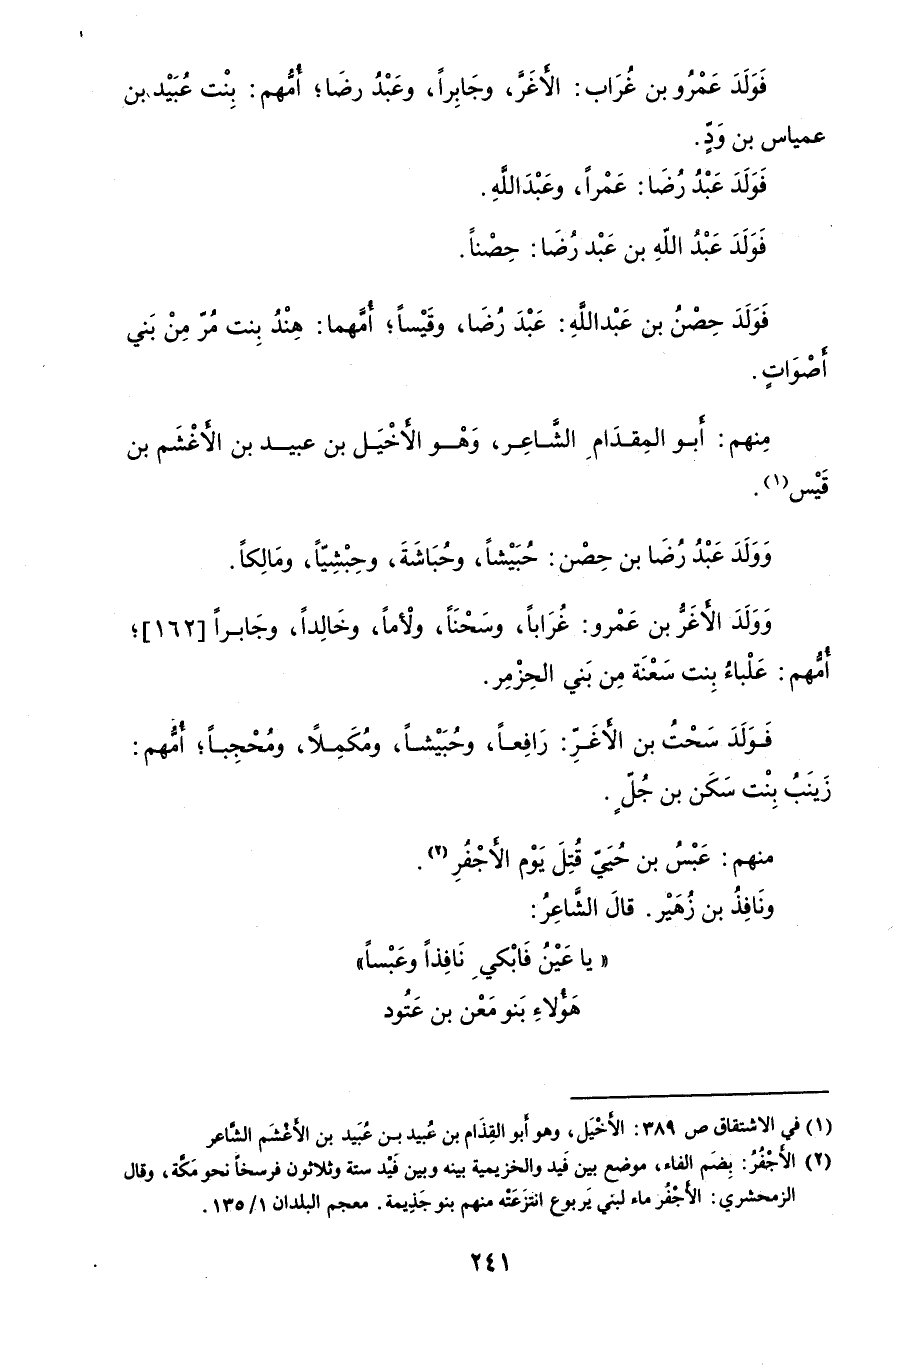 فَوَلَدَ عَمْرُو بن غُرَاب: الأَغَرَّ، وجَابِراً، وعَبْدُ رضَا؛ أُمُّهم: بِنْت عُبَيْد بن
عمياس بن وَدٍّ.
فَوَلَدَ عَبْدُ رُضَا: عَمْراً، وعَبْدَاللَّهِ.
فَوَلَدَ عَبْدُ اللّهِ بن عَبْد رُضَا: حِصْناً.
فَوَلَدَ حِصْنُ بن عَبْداللَّهِ: عَبْدَ رُضَا، وقَيْساً؛ أُمَّهما: هِنْدُ بِنت مُرّ مِنْ بَني
أَصْوَاتٍ.
مِنهم: أَبو المِقدَامِ الشَّاعِر، وَهْو الأَخْيَل بن عبيد بن الأَغْشَم بن
قَيْس(١).
وَوَلَدَ عَبْدُ رُضَا بن حِصْن: حُبَيْشاً، وحُبَاشَةَ، وحِبْشِيّاً، ومَالِكاً.
وَوَلَدَ الأَغَرُّ بن عَمْرو: غُرَاباً، وسَحْتَاً، ولْأماً، وخَالِداً، وجَابراً [١٦٢]؛
أُمُّهم: عَلْباءُ بِنت سَعْنَة مِن بَني الحِزْمِر.
فَوَلَدَ سَحْتُ بن الأَغَرِّ: رَافِعاً، وحُبَيْشاً، ومُكَمِلًا، ومُحْجِباً؛ أُمُّهم:
زَينَبُ بِنْت سَكَن بن جُلٍّ.
منهم: عَبْسُ بن حُيَيّ قُتِلَ يَوْم الأَجْفُرِ(٢).
ونَافِذُ بن زُهَيْر. قالَ الشَّاعِرُ:
« يا عَيْنُ فَابْكيِ نَافِذاً وعَبْساً»
هَؤُلاءِ بَنو مَعْن بن عَتُود
(١) في الاشتقاق ص ٣٨٩: الأَخْيَل، وهو أبو القِذَام بن عُبيد بن عُبَيد بن الأَغْشَم الشَّاعر
(٢) الأَجْفُرُ: بِضَم الفاء، موضع بين فَيد والخزيمية بينه وبين فَيْد ستة وثلاثون فرسخاً نحو مَكَّة، وقال
الزمخشري: الأَجْفُر ماء لبني يَربوع انتزَعَتْه منهم بنو جَذِيمة. معجم البلدان ١/١٣٥.
٢٤١